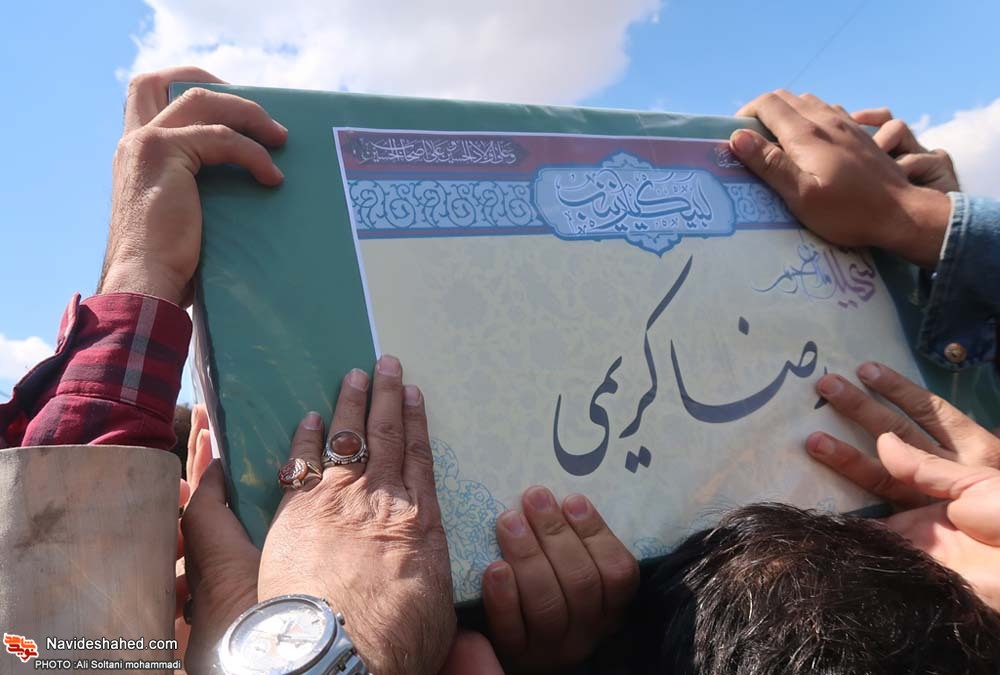 وعلی اولاد الحسین و علی اصحاب الحسین
لبیک یا زینب
رضا کریمی
Navideshahed.com
PHOTO :Ali Soltani mohammadi